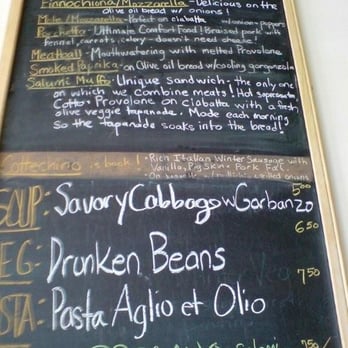 Finocchiona/Mozzarella - Delicious on the
Olive oil bread w/ onions!
Mole/Mozzarella - Perfect on ciabatta
w/ onion + peppers
Porchetta - Ultimate Comfort Food! Braised pork with
fennel, carrots, celery - doesn't need cheese!
Meatball - Mouthwatering with melted Provolone
Smoked Paprika - on Olive oil bread w/ cooling gorgonzola
Salumi Muffo - Unique sandwich - the only one
on which we combine meats! Hot Sopressata
Cotto + Provolone on ciabatta with a fresh
olive veggie tapanade. Made each morning
So the tapanade soaks into the bread!
Cottechino is back! • Rich Italian Winter Sausage with
Vanilla, Pig Skin + Pork Fat.
5.00
SOUP: Savory Cabbage w Garbanzo
6.50
EG: Drunken Beans
7.50
STA: Pasta Aglio et Olio
7.50/